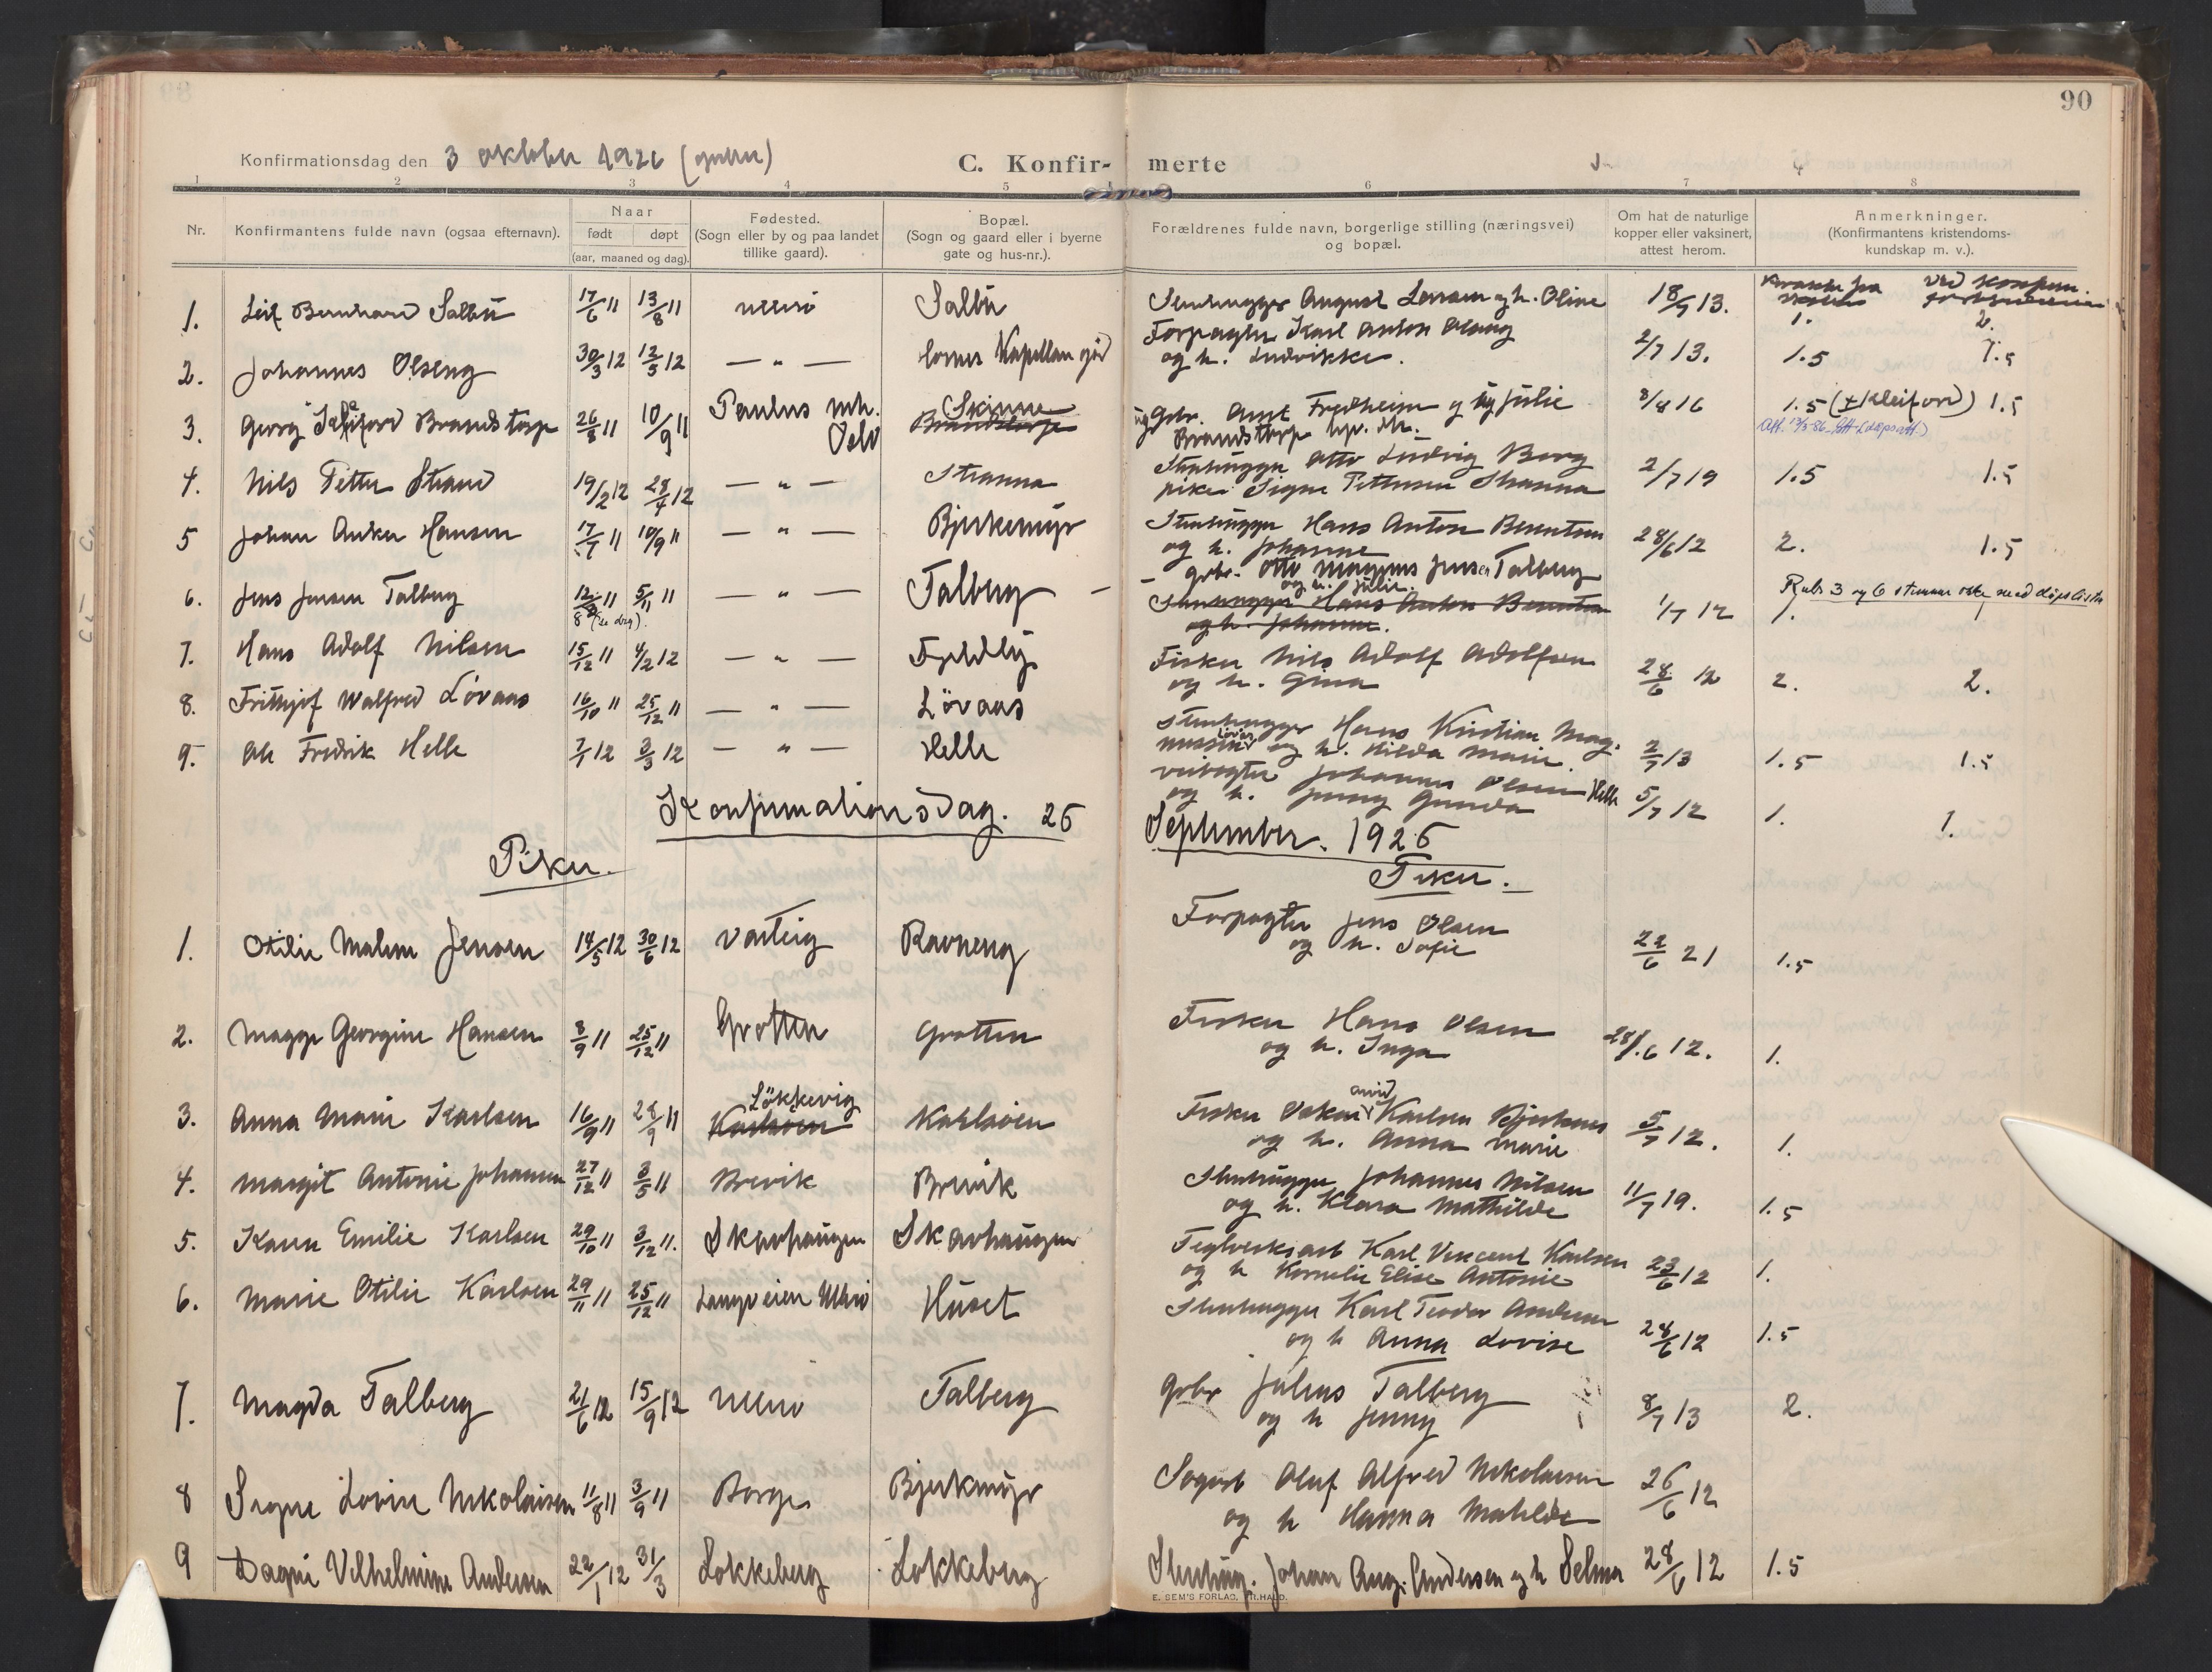 90
Konfirmationsdag den 3 oktober 1926
C. Konfir- merte
1 2 3 4 5 6 7 8
Nr.
Konfirmantens fulde navn (ogsaa efternavn).
Naar
født døpt
(aar, maaned og dag).
Fødested.
(Sogn eller by og paa landet
tillike gaard).
Bopæl.
(Sogn og gaard eller i byerne
gate og hus-nr.).
Forældrenes fulde navn, borgerlige stilling (næringsvei)
og bopæl.
Om hat de naturlige
kopper eller vaksinert,
attest herom.
Anmerkninger.
(Konfirmantens kristendoms-
kundskap m. v.).
1. Leif Bernhard Salbu 17/6 11 13/8 11 Ullerö Salbu Stenhugger August Larsen og h. Oline 18/7 13. 1. 2.
2. Johannes Olseng 30/3 12 12/5 12 — " — Hornes Kapellangård Forpagter Karl Anton Olseng
og h. Ludvikke. 2/7 13. 1.5 1.5
3. Georg Brandstorp 26/8 11 10/9 11 Paulus mh. Oslo Skinne Brandstorp gbr. Arnt Fredheim og Julie
Brandstorp 8/8 16 1.5 (± Kleiford) 1.5
4. Nils Petter Strand 19/2 12 28/4 12 — " — Stranna Stenhugger Otto Ludvig Borg
pike Signe Pettersen Stranna 2/7 19 1.5 1.5
5 Johan Anker Hansen 17/7 11 10/9 11 — " — Bjerkemyr Stenhugger Hans Anton Berntsen
og h. Johanne 28/6 12 2. 1.5
6. Jens Jensen Talberg 12/8 11 5/11 11 — " — Talberg — gbr. Otto Magnus Jensen Talberg
og h. Julie.
Stenhugger Hans Anton Berntsen
og h. Johanne. 1/7 12 1. 1
Rub 3 og 6 stemmer ikke med dåpslista
7. Hans Adolf Nilsen 15/12 11 4/2 12 — " — Fjeldly Fisker Nils Adolf Adolfsen
og h. Gina 28/6 12 2. 2.
8. Frithjof Walfred Lövaas 16/10 11 25/12 11 — " — Lövaas Stenhugger Hans Kristian Mag-
nussen og h. Hilda Marie. 2/7 13 1.5 1.5
9. Ole Fredrik Helle 7/1 12 3/3 12 — " — Helle veivogter Johannes Olsen Helle
og h. Jenny Gunda 5/7 12 1. 1.
Konfirmationsdag. 26 September. 1926
Piker. Piker.
1. Otilie Malene Jensen 14/5 12 30/6 12 Varteig Ravneng Forpagter Jens Olsen
og h. Sofie 22/6 21 1.5
2. Magge Georgine Hansen 8/9 11 25/12 11 Grotten Grotten Fisker Hans Olsen
og h. Inga 28/6 12. 1.
3. Anna Marie Karlsen 16/9 11 28/9 11 Lökkevig Karlsöen Karlsöen Fisker Oskar Arvid Karlsen
og h. Anna Marie 5/7 12. 1.
4. Margit Antonie Johansen 27/12 11 3/5 11 Brevik Brevik Stenhugger Johannes Nilsen
og h. Klara Mathilde 11/7 19. 1.5
5. Karen Emilie Karlsen 29/10 11 3/12 11. Skarhaugen Skarhaugen Teglverksarb Karl Vincent Karlsen
og h Kornelie Elise Antonie 23/6 12 1.
6. Marie Otilie Karlsen 29/11 11 25/12 11 Langveien Ullerö Huset Stenhugger Karl Teodor Andersen
og h Anna Lovise 28/6 12 1.5
7. Magda Talberg 21/6 12 15/9 12 Ullerö Talberg gbr Julius Talberg
og h Jenny 8/7 13 2.
8 Signe Lovise Nikolaisen 11/8 11 3/9 11 Borge Bjerkmyr Sagarb Oluf Alfred Nikolaisen
og h Hanna Matilde 26/6 12
9 Dagni Vilhelmine Andersen 22/1 12 31/3 Lokkeberg Lokkeberg Stenhug. Johan Aug. Andersen og h Selma 28/6 12 1.5
E. SEM'S FORLAG, FR.HALD.